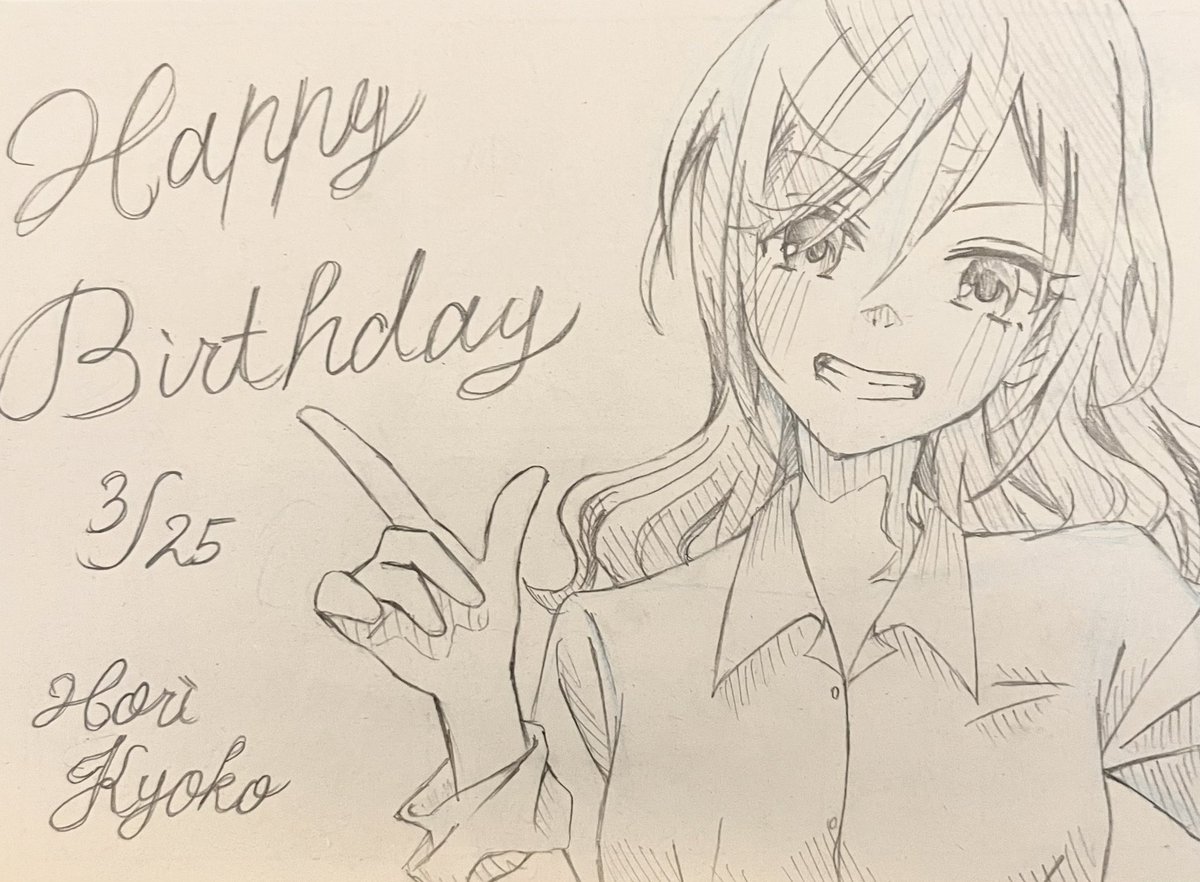 Happy
Birthday
3/25
Hori
Kyoko